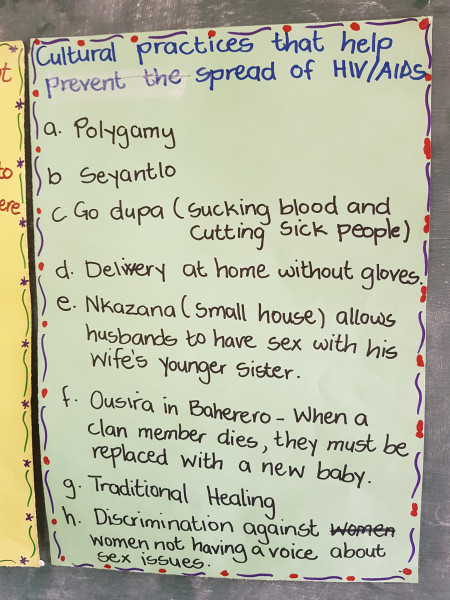 Cultural practices that help
prevent the spread of HIV/AIDS
a. Polygamy
b Seyantlo
c Go dupa (sucking blood and
cutting sick people)
d. Delivery at home without gloves.
e. Nkazana (small house) allows
husbands to have sex with his
wife's younger sister.
f. Ousira in Baherero - When a
clan member dies, they must be
replaced with a new baby.
g. Traditional Healing
h. Discrimination against women
women not having a voice about
sex issues.
to
ere